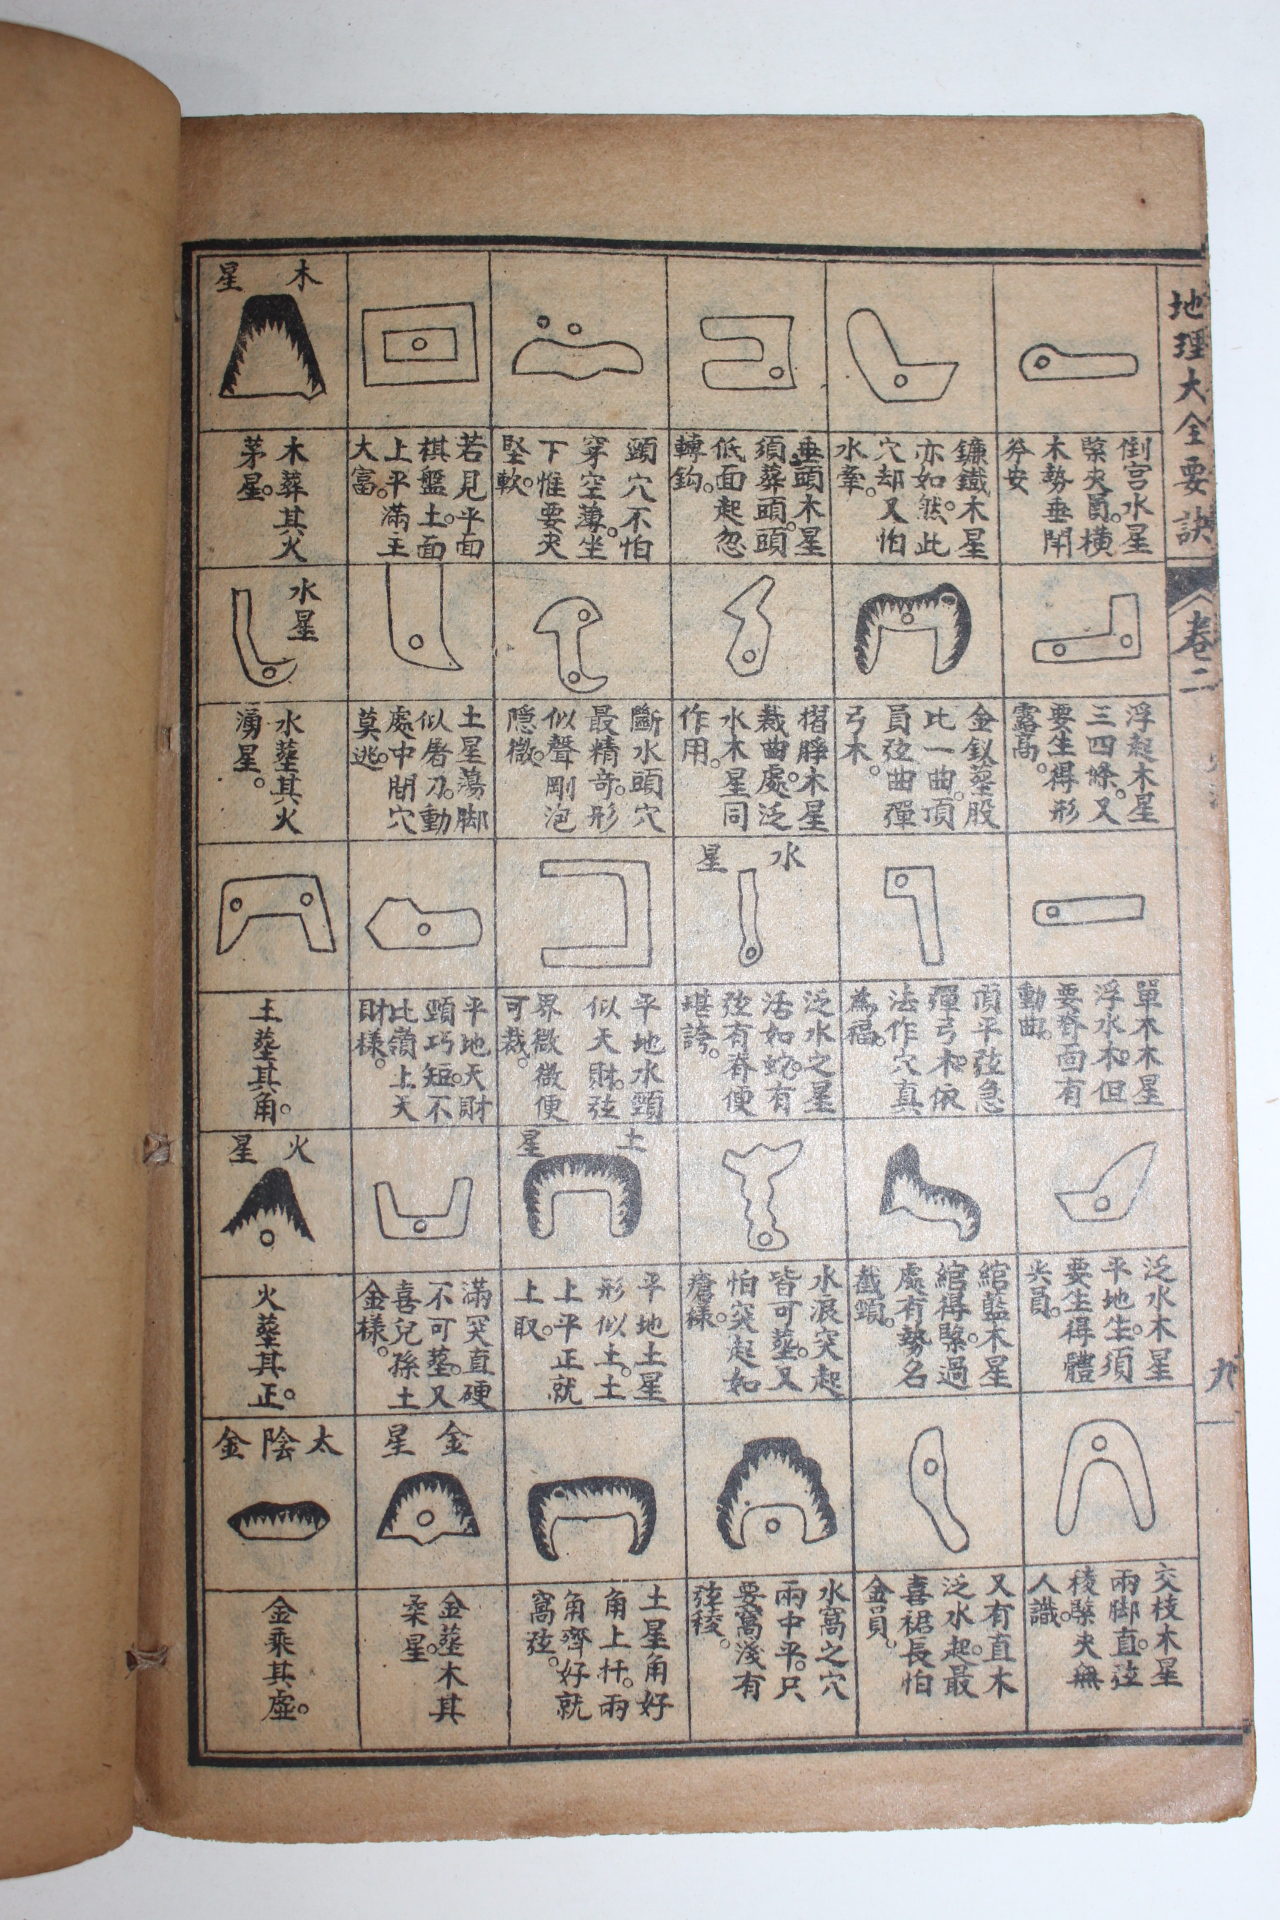 地理大全要訣
卷二
九
倒宮水星
緊夾員橫
木勢垂閉
穸安
浮起木星
三四條。又
要生得形
露高。
單木木星
浮水木。但
要脊面有
動曲。
泛水木星
平地生。須
要生得體
尖員。
交枝木星
兩脚直。弦
稜緊夾無
人識。
鐮鐵木星
亦如然。此
穴却又怕
水牽。
金釵塟股
比一曲。項
員弦曲彈
弓木。
頂平弦急
彈弓木。依
法作穴真
為福。
綰藍木星
綰得緊。過
處有勢名
截頸。
又有直木
泛水起。最
喜裙長怕
金員。
垂頭木星
須葬頭。頭
低面起忽
轉鈎。
摺脝木星
裁曲處。泛
水木星同
作用。
水星
泛水之星
活如蛇。有
弦有脊便
堪誇。
水浪突起
皆可塟。又
怕突起如
瘡樣。
水窩之穴
兩中平。只
要窩淺有
弦稜。
頸穴不怕
穿空薄。坐
下惟要夾
堅軟。
斷水頭穴
最精奇。形
似聲剛泡
隱微。
平地水頸
似天財。弦
界微微便
可裁。
土星
平地土星
形似土。土
上平正就
上取。
土星角好
角上扦。兩
角齊好就
窩弦。
若見平面
棋盤土。面
上平滿主
大富。
土星蕩脚
似屠刀。動
處中間穴
莫逃。
平地天財
頸巧短。不
比嶺上天
財樣。
滿突直硬
不可塟。又
喜兒孫土
金樣。
金星
金塟木其
柔星。
木星
木葬其火
茅星。
水星
水塟其火
湧星。
土塟其角。
火星
火塟其正。
太陰金
金乘其虛。